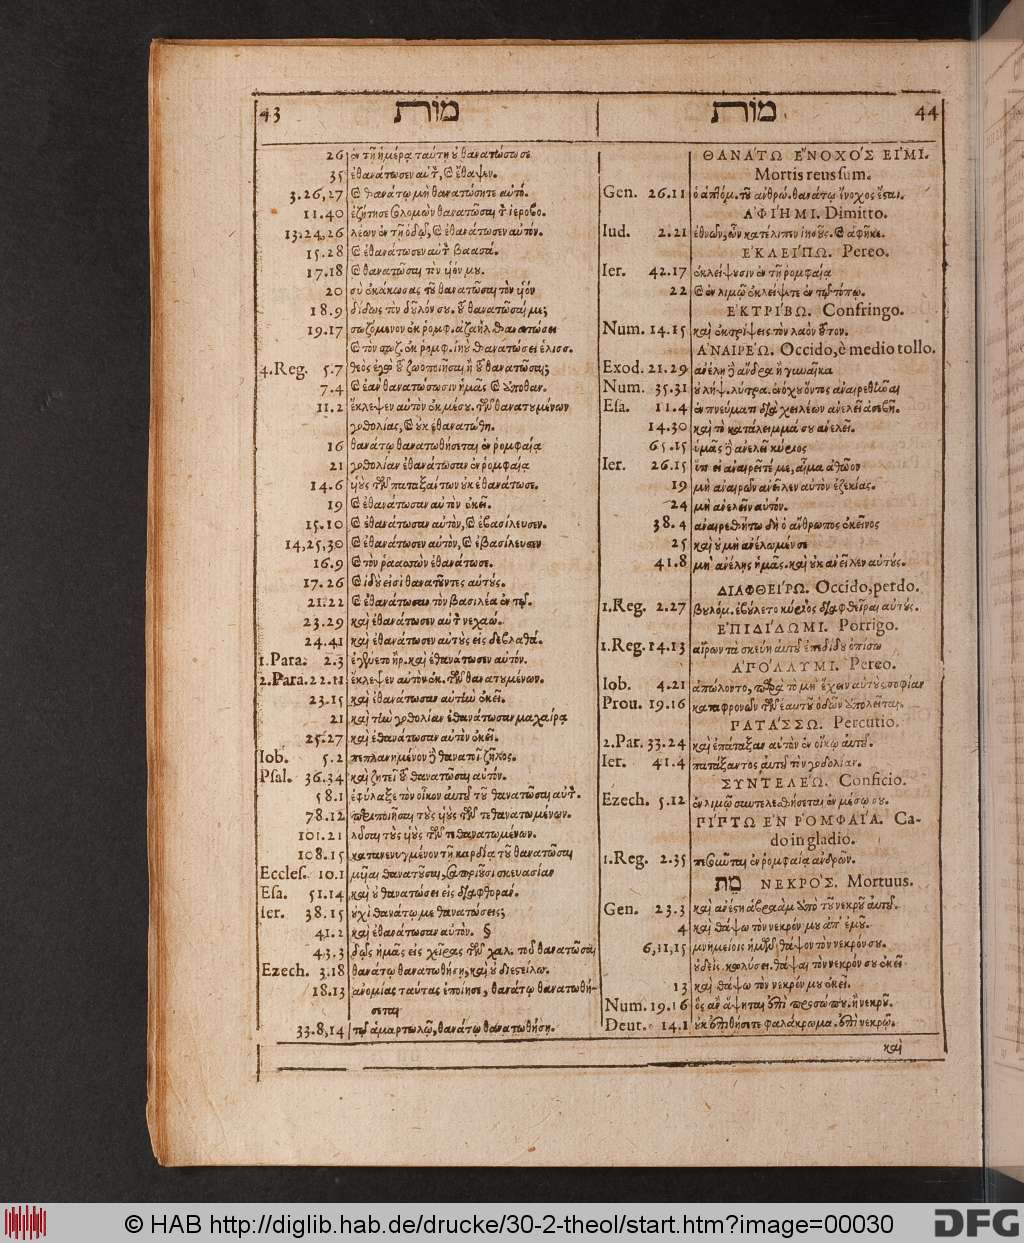 43 מות
26 ἐν τῇ ἡμέρᾳ ταύτῃ οὐ θανατώσω σε
35 ἐθανάτωσεν αὐτ, καὶ ἔθαψεν.
3.26,27 καὶ θανάτῳ μὴ θανατώσητε αὐτό.
11.40 ἐζήτησε σολομὼν θανατῶσαι τ ἱεροβο.
13.24,26 λέων ἐν τῇ ὁδῷ, καὶ ἐθανάτωσεν αὐτόν.
15.28 καὶ ἐθανάτωσεν αὐτ βαασά.
17.18 καὶ θανατῶσαι τὸν υἱόν μου.
20 σὺ ἐκάκωσας τοῦ θανατῶσαι τὸν υἱόν
18.9 δίδως τὸν δοῦλόν σου. τοῦ θανατῶσαί με;
19.17 σωζόμενον ἐκ ῥομφ. ἀζαὴλ θανατώσει
καὶ τὸν σωζ. ἐκ ῥομφ. ἰηοὺ θανατώσει ἑλισσ.
4.Reg. 5.7 θεὸς ἐγὼ τοῦ ζωοποιῆσαι ἢ τοῦ θανατῶσαι;
7.4 καὶ ἐὰν θανατώσωσιν ἡμᾶς καὶ ἀποθαν.
11.2 ἔκλεψεν αὐτὸν ἐκ μέσου. τῶν θανατουμένων
γοθολίας, καὶ οὐκ ἐθανατώθη.
16 θανάτῳ θανατωθήσεται ἐν ῥομφαίᾳ
21 γοθολίαν ἐθανάτωσαν ἐν ῥομφαίᾳ
14.6 υἱοὺς τῶν παταξάντων οὐκ ἐθανάτωσε.
19 καὶ ἐθανάτωσαν αὐτὸν ἐκεῖ.
15.10 καὶ ἐθανάτωσαν αὐτὸν, καὶ ἐβασίλευσεν.
14,25,30 καὶ ἐθανάτωσεν αὐτὸν, καὶ ἐβασίλευσεν
16.9 καὶ τὸν ῥαασσὼν ἐθανάτωσε.
17.26 καὶ ἰδού εἰσι θανατοῦντες αὐτούς.
21.22 καὶ ἐθανάτωσαν τὸν βασιλέα ἐν τῷ.
23.29 καὶ ἐθανάτωσεν αὐτ νεχαώ.
24.41 καὶ ἐθανάτωσεν αὐτοὺς εἰς δεβλαθά.
1.Para. 2.3 ἐγένετο ἢρ. καὶ ἐθανάτωσεν αὐτόν.
2.Para. 22.11 ἔκλεψεν αὐτὸν ἐκ. τῶν θανατουμένων.
23.15 καὶ ἐθανάτωσαν αὐτὴν ἐκεῖ.
21 καὶ τὴν γοθολίαν ἐθανάτωσαν μαχαίρᾳ
25.27 καὶ ἐθανάτωσαν αὐτὸν ἐκεῖ.
Iob. 5.2 πεπλανημένον δὲ θανατοῖ ζῆλος.
Psal. 36.34 καὶ ζητεῖ τοῦ θανατῶσαι αὐτόν.
58.1 ἐφύλαξε τὸν οἶκον αὐτοῦ τοῦ θανατῶσαι αὐτ.
78.12 περιποίησαι τοὺς υἱοὺς τῶν τεθανατωμένων.
101.21 λῦσαι τοὺς υἱοὺς τῶν τεθανατωμένων.
108.15 κατανενυγμένον τῇ καρδίᾳ τοῦ θανατῶσαι
Eccles. 10.1 μυῖαι θανατοῦσαι, σαπριοῦσι σκευασίαν
Esa. 51.14 καὶ οὐ θανατώσει εἰς διαφθοράν.
Ier. 38.15 οὐχὶ θανάτῳ με θανατώσεις;
41.2 καὶ ἐθανάτωσαν αὐτόν. §
43.3 δῷς ἡμᾶς εἰς χεῖρας τῶν χαλ. τοῦ θανατῶσαι
Ezech. 3.18 θανάτῳ θανατωθήσῃ, καὶ οὐ διεστείλω.
18.13 ἀνομίας ταύτας ἐποίησε, θανάτῳ θανατωθή-
σεται
33.8,14 τῷ ἁμαρτωλῷ, θανάτῳ θανατωθήσῃ.
מות 44
ΘΑΝΑΤΩ ΕΝΟΧΟΣ ΕΙΜΙ.
Mortis reus sum.
Gen. 26.11 ὁ ἁπτόμ. τοῦ ἀνθρώ. θανάτῳ ἔνοχος ἔσται.
ΑΦΙΗΜΙ. Dimitto.
Iud. 2.21 ἐθνῶν, ὧν κατέλιπεν ἰησοῦς. καὶ ἀφῆκε.
ΕΚΛΕΙΠΩ. Pereo.
Ier. 42.17 ἐκλείψουσιν ἐν τῇ ῥομφαίᾳ
22 καὶ ἐν λιμῷ ἐκλείψετε ἐν τῷ τόπῳ.
ΕΚΤΡΙΒΩ. Confringo.
Num. 14.15 καὶ ἐκτρίψεις τὸν λαὸν τοῦτον.
ΑΝΑΙΡΕΩ. Occido, è medio tollo.
Exod. 21.29 ἀνέλῃ δὲ ἄνδρα ἢ γυναῖκα
Num. 35.31 οὐ λήψ. λύτρα. ἐνόχου ὄντος ἀναιρεθῆναι
Esa. 11.4 ἐν πνεύματι διὰ χειλέων ἀνελεῖ ἀσεβῆ.
14.30 καὶ τὸ κατάλειμμά σου ἀνελεῖ.
65.15 ὑμᾶς δὲ ἀνελεῖ κύριος
Ier. 26.15 ὅτι εἰ ἀναιρεῖτέ με, αἷμα ἀθῶον
19 μὴ ἀναιρῶν ἀνεῖλεν αὐτὸν ἐζεκίας.
24 μὴ ἀνελεῖν αὐτόν.
38.4 ἀναιρεθήτω δὴ ὁ ἄνθρωπος ἐκεῖνος
25 καὶ οὐ μὴ ἀνέλωμέν σε
41.8 μὴ ἀνέλῃς ἡμᾶς. καὶ οὐκ ἀνεῖλεν αὐτούς.
ΔΙΑΦΘΕΙΡΩ. Occido, perdo.
1.Reg. 2.27 βουλόμ. ἐβούλετο κύριος διαφθεῖραι αὐτούς.
ΕΠΙΔΙΔΩΜΙ. Porrigo.
1.Reg. 14.13 αἴρων τὰ σκεύη αὐτοῦ ἐπεδίδου ὀπίσω
ΑΠΟΛΛΥΜΙ. Pereo.
Iob. 4.21 ἀπώλοντο, παρὰ τὸ μὴ ἔχειν αὐτοὺς σοφίαν
Prou. 19.16 καταφρονῶν τῶν ἑαυτοῦ ὁδῶν ἀπολεῖται.
ΠΑΤΑΣΣΩ. Percutio.
2.Par. 33.24 καὶ ἐπάταξαν αὐτὸν ἐν οἴκῳ αὐτοῦ.
Ier. 41.4 πατάξαντος αὐτοῦ τὸν γοδολίαν.
ΣΥΝΤΕΛΕΩ. Conficio.
Ezech. 5.12 ἐν λιμῷ συντελεσθήσεται ἐν μέσῳ σου.
ΠΙΠΤΩ ΕΝ ΡΟΜΦΑΙΑ. Ca-
do in gladio.
1.Reg. 2.35 πεσοῦνται ἐν ῥομφαίᾳ ἀνδρῶν.
מת ΝΕΚΡΟΣ. Mortuus.
Gen. 23.3 καὶ ἀνέστη ἁβραὰμ ἀπὸ τοῦ νεκροῦ αὐτοῦ.
4 καὶ θάψω τὸν νεκρόν μου ἀπ' ἐμοῦ.
6,11,15 μνημείοις ἡμῶν θάψον τὸν νεκρόν σου.
οὐδεὶς κωλύσει. θάψαι τὸν νεκρόν σου ἐκεῖ
13 καὶ θάψω τὸν νεκρόν μου ἐκεῖ.
Num. 19.16 ὃς ἂν ἅψηται ἐπὶ προσώπου. ἢ νεκροῦ.
Deut. 14.1 οὐκ ἐπιθήσετε φαλάκρωμα. ἐπὶ νεκρῷ.
καὶ
© HAB http://diglib.hab.de/drucke/30-2-theol/start.htm?image=00030 DFG